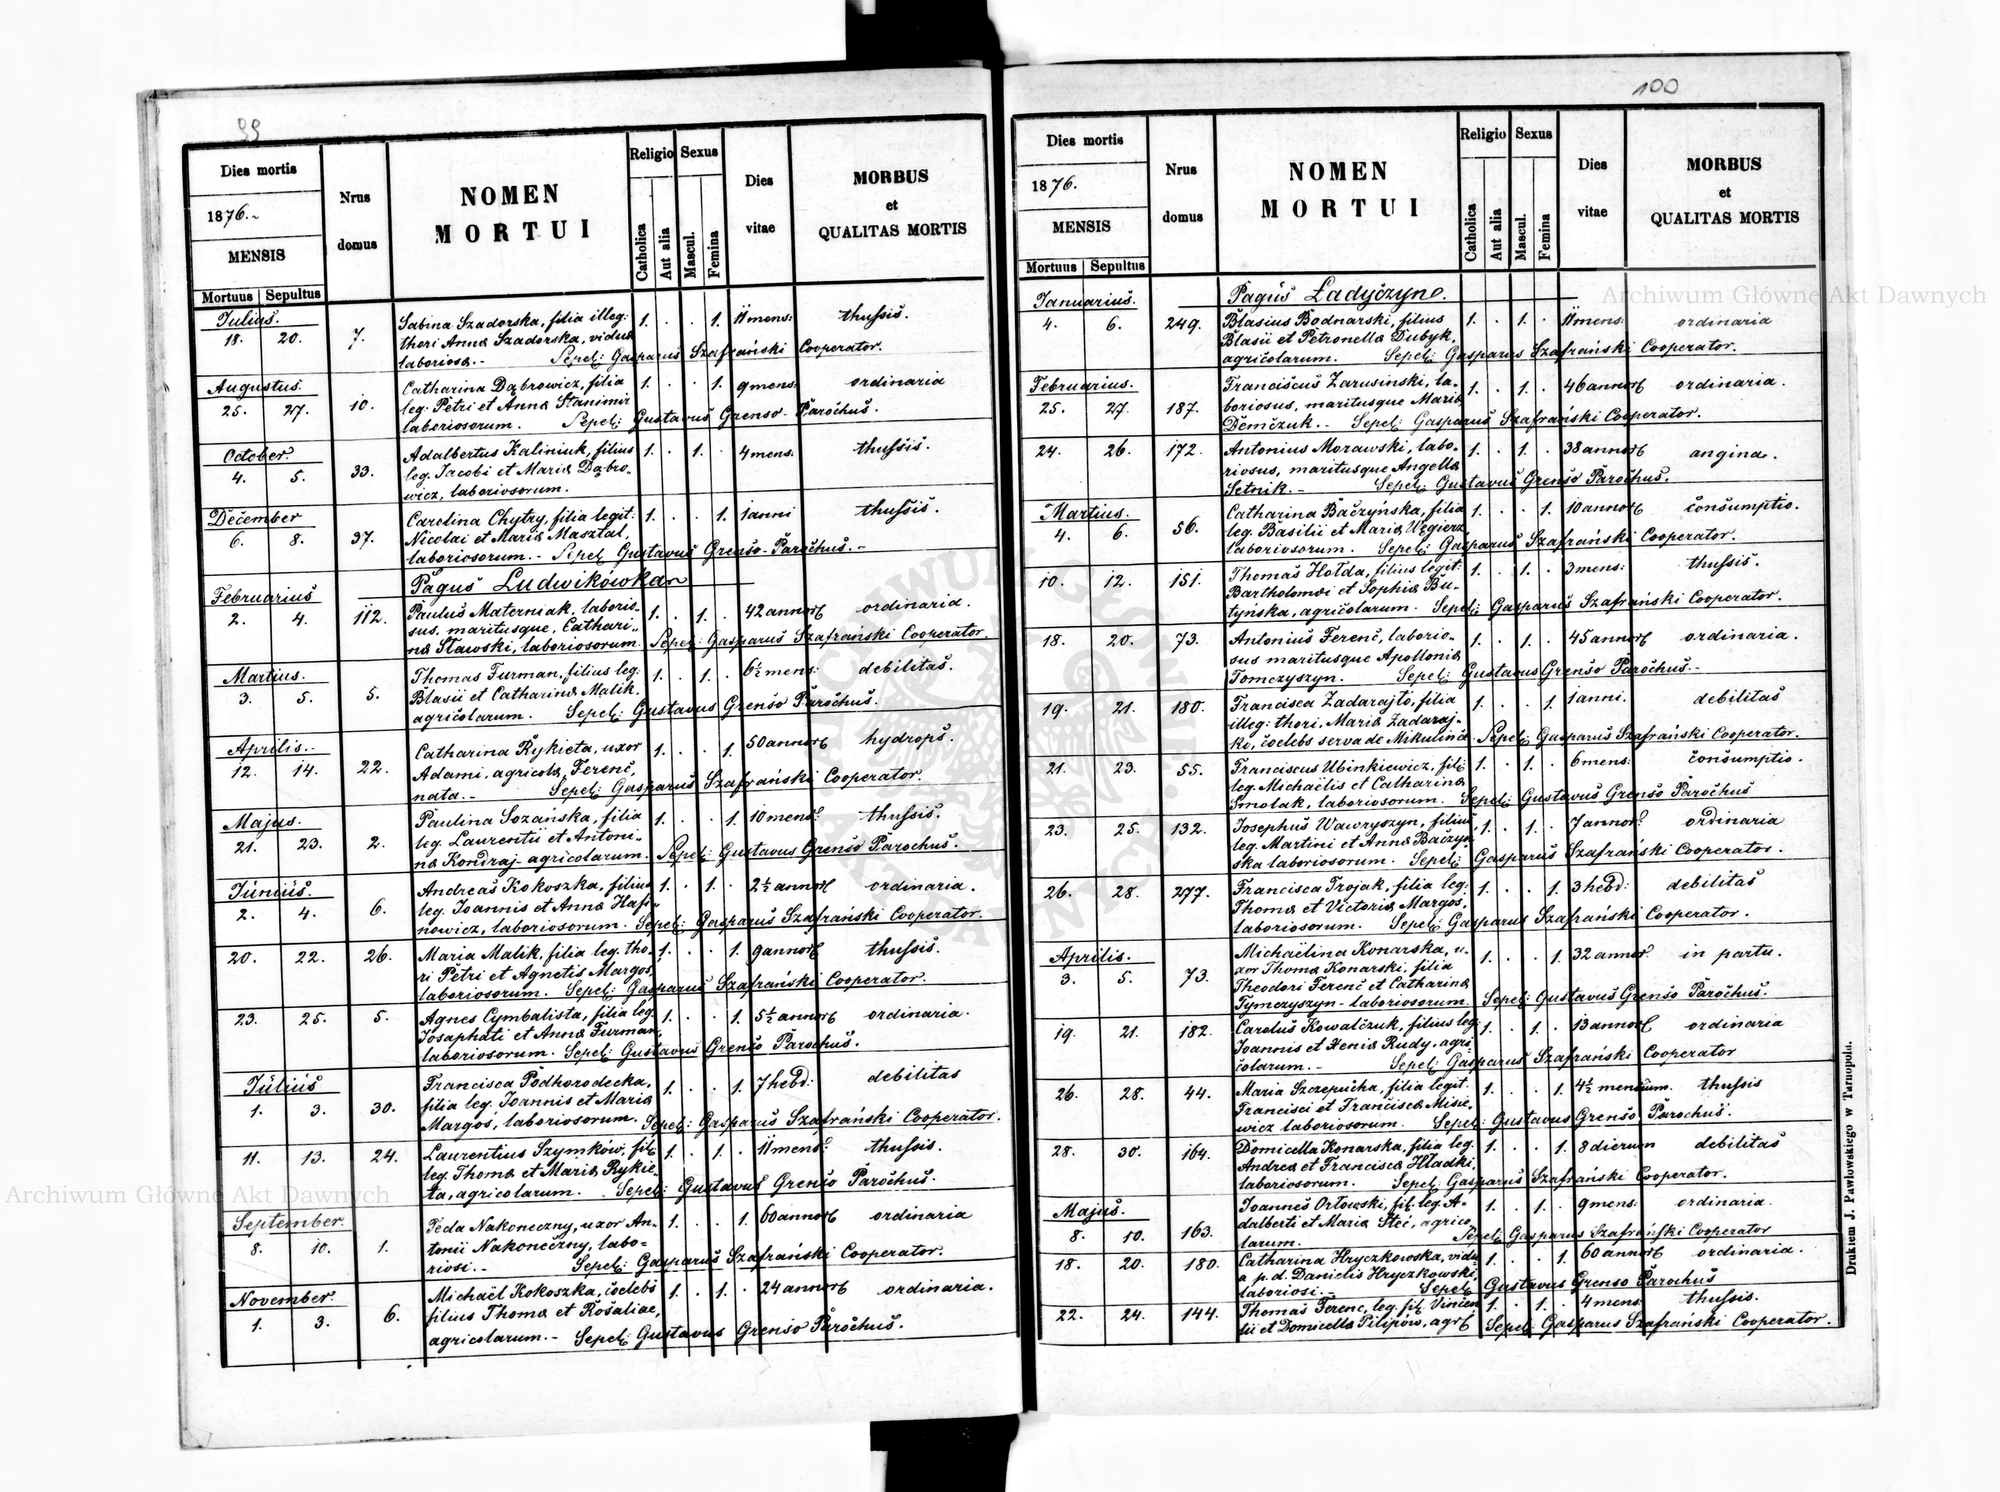 99
Dies mortis
1876.
MENSIS
Mortuus Sepultus
Nrus domus
NOMEN MORTUI
Religio
Catholica
Aut alia
Sexus
Mascul.
Femina
Dies vitae
MORBUS
et
QUALITAS MORTIS
Iulius.
18. 20. 7. Sabina Szadorska, filia illeg: 1. . . 1. 11 mens: thussis.
thori Anna Szadorska, vidua
laboriosa.- Sepel: Gasparus Szafrański Cooperator.
Augustus.
25. 27. 10. Catharina Dąbrowicz, filia 1. . . 1. 9 mens: ordinaria
leg. Petri et Anna Stanimir
laboriosorum. Sepel: Gustavus Grenso Parochus.
October.
4. 5. 33. Adalbertus Kaliniuk, filius 1. . 1. . 4 mens. thussis.
leg. Jacobi et Maria Dąbro-
wicz, laboriosorum.
December
6. 8. 37. Carolina Chytry, filia legit: 1. . . 1. 1 anni thussis.
Nicolai et Maria Masztal,
laboriosorum.- Sepel Gustavus Grenso-Parochus.-
Pagus Ludwikówka
Februarius
2. 4. 112. Paulus Materniak, laborio- 1. . 1. . 42 annor ordinaria.
sus, maritusque, Cathari-
na Sławski, laboriosorum. Sepel: Gasparus Szafrański Cooperator.
Martius.
3. 5. 5. Thomas Furman, filius leg. 1. . 1. . 6½ mens: debilitas.
Blasii et Catharina Malik,
agricolarum. Sepel: Gustavus Grenso Parochus.
Aprilis.
12. 14. 22. Catharina Rykieta, uxor 1. . . 1. 50 annor hydrops.
Adami, agricola, Ferenc,
nata.- Sepel: Gasparus Szafrański Cooperator.
Majus.
21. 23. 2. Paulina Sozańska, filia 1. . . 1. 10 mens: thussis.
leg. Laurentii et Antoni-
na Kondraj- agricolarum. Sepel: Gustavus Grenso Parochus.
Iunius.
2. 4. 6. Andreas Kokoszka, filius 1. . 1. . 2½ annor ordinaria.
leg. Joannis et Anna Hafi-
nowicz, laboriosorum. Sepel: Gasparus Szafrański Cooperator.
20. 22. 26. Maria Malik, filia leg. tho- 1. . . 1. 9 annor thussis.
ri Petri et Agnetis Margos,
laboriosorum. Sepel: Gasparus Szafrański Cooperator.
23. 25. 5. Agnes Cymbalista, filia leg. 1. . . 1. 5½ annor ordinaria.
Josaphati et Anna Furman,
laboriosorum. Sepel: Gustavus Grenso Parochus.
Iulius
1. 3. 30. Francisca Podhorodecka, 1. . . 1. 7 hebd: debilitas
filia leg. Joannis et Maria
Margos, laboriosorum. Sepel: Gasparus Szafrański Cooperator.
11. 13. 24. Laurentius Szymków, fil. 1. . 1. . 11 mens: thussis.
leg. Thoma et Maria Rykie-
ta, agricolarum. Sepel: Gustavus Grenso Parochus.
September.
8. 10. 1. Teda Nakoneczny, uxor An- 1. . . 1. 60 annor ordinaria
tonii Nakoneczny, labo-
riosi.- Sepel: Gasparus Szafrański Cooperator.
November.
1. 3. 6. Michael Kokoszka, coelebs 1. . 1. . 24 annor ordinaria.
filius Thoma et Rosaliae,
agricolarum.- Sepel: Gustavus Grenso Parochus.
100
Dies mortis
1876.
MENSIS
Mortuus Sepultus
Nrus domus
NOMEN MORTUI
Religio
Catholica
Aut alia
Sexus
Mascul.
Femina
Dies vitae
MORBUS
et
QUALITAS MORTIS
Pagus Ladyczyn.
Ianuarius.
4. 6. 249. Blasius Bodnarski, filius 1. . 1. . 11 mens: ordinaria
Blasii et Petronella Dubyk,
agricolarum. Sepel: Gasparus Szafrański Cooperator.
Februarius.
25. 27. 187. Franciscus Zarusinski, la- 1. . 1. . 46 annor ordinaria.
boriosus, maritusque Maria
Demczuk.- Sepel: Gasparus Szafrański Cooperator.
24. 26. 172. Antonius Morawski, labo- 1. . 1. . 38 annor angina.
riosus, maritusque Angella
Setnik.- Sepel: Gustavus Grenso Parochus.
Martius.
4. 6. 56. Catharina Baczynska, filia 1. . . 1. 10 annor consumptio.
leg. Basilii et Maria Węgierz
laboriosorum. Sepel: Gasparus Szafrański Cooperator.
10. 12. 151. Thomas Hołda, filius legit: 1. . 1. . 3 mens: thussis.
Bartholomei et Sophia Bu-
tyńska, agricolarum. Sepel: Gasparus Szafrański Cooperator.
18. 20. 73. Antonius Ferenc, laborio- 1. . 1. . 45 annor ordinaria.
sus maritusque Apollonia
Tomczyszyn. Sepel: Gustavus Grenso Parochus.-
19. 21. 180. Francisca Zadarajło, filia 1. . . 1. 1 anni. debilitas
illeg: thori, Maria Zadaraj-
ko, coelebs serva de Mikulince. Sepel: Gasparus Szafrański Cooperator.
21. 23. 55. Franciscus Ubinkiewicz, fil: 1. . 1. . 6 mens: consumptio.
leg. Michaëlis et Catharina
Smolak, laboriosorum. Sepel: Gustavus Grenso Parochus
23. 25. 132. Josephus Wawryszyn, filius 1. . 1. . 7 annor: ordinaria
leg. Martini et Anna Baczyn-
ska laboriosorum. Sepel: Gasparus Szafrański Cooperator.
26. 28. 277. Francisca Trojak, filia leg: 1. . . 1. 3 hebd: debilitas
Thoma et Victoria Margos,
laboriosorum. Sepel: Gasparus Szafrański Cooperator.
Aprilis.
3. 5. 73. Michaëlina Konarska, u- 1. . . 1. 32 annor: in partu.
xor Thoma Konarski, filia
Theodori Ferenc et Catharina
Tymczyszyn- laboriosorum. Sepel: Gustavus Grenso Parochus.
19. 21. 182. Carolus Kowalczuk, filius leg: 1. . 1. . 13 annor ordinaria
Joannis et Xenia Rudy, agri-
colarum.- Sepel: Gasparus Szafrański Cooperator
26. 28. 44. Maria Szczepucha, filia legit. 1. . . 1. 4½ mensium. thussis
Francisci et Francisca Misie-
wicz laboriosorum. Sepel: Gustavus Grenso Parochus.
28. 30. 164. Domicella Konarska, filia leg. 1. . . 1. 8 dierum debilitas
Andrea et Francisca Hładki,
laboriosorum. Sepel: Gasparus Szafrański Cooperator.
Majus.
8. 10. 163. Joannes Orłowski, fil. leg. A- 1. . 1. . 9 mens: ordinaria.
dalberti et Maria Stec, agrico
larum. Sepel: Gasparus Szafrański Cooperator
18. 20. 180. Catharina Hryczkowska, vidu- 1. . . 1. 60 annor ordinaria.
a p. d. Danielis Hryczkowski,
laboriosi.- Sepel: Gustavus Grenso Parochus
22. 24. 144. Thomas Ferenc, leg. fil. Vincen 1. . 1. . 4 mens: thussis.
tii et Domicella Pilipów, agr. Sepel: Gasparus Szafrański Cooperator.
Drukiem J. Pawłowskiego w Tarnopolu.
Archiwum Główne Akt Dawnych
Archiwum Główne Akt Dawnych
ARCHIWUM GŁÓWNE AKT DAWNYCH